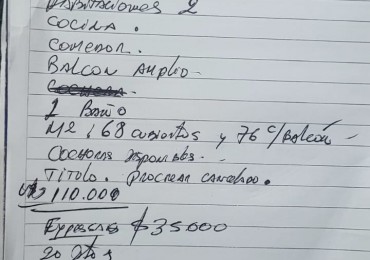 Habitaciones 2
COCINA.
COMEDOR.
BALCON AMPLIO -
COCHERA -
1 BAÑO
M2 : 68 cubiertos y 76 c/Balcón -
COCHERAS disponibles. -
TITULO. PROCREAR CANCELADO.
U$S 110.000
Expensas $35.000
20 años